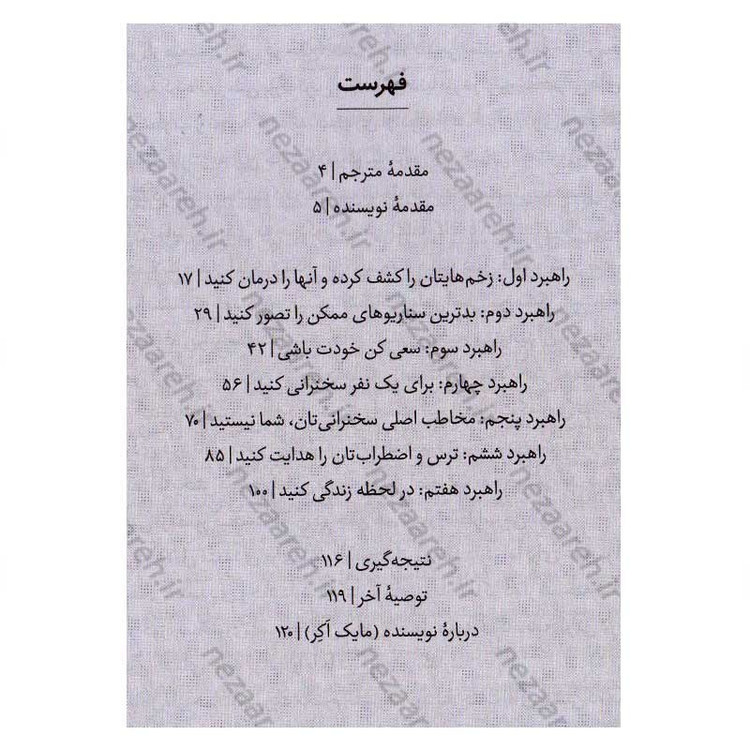 فهرست
مقدمهٔ مترجم | ۴
مقدمهٔ نویسنده | ۵
راهبرد اول: زخم‌هایتان را کشف کرده و آنها را درمان کنید | ۱۷
راهبرد دوم: بدترین سناریوهای ممکن را تصور کنید | ۲۹
راهبرد سوم: سعی کن خودت باشی | ۴۲
راهبرد چهارم: برای یک نفر سخنرانی کنید | ۵۶
راهبرد پنجم: مخاطب اصلی سخنرانی‌تان، شما نیستید | ۷۰
راهبرد ششم: ترس و اضطراب‌تان را هدایت کنید | ۸۵
راهبرد هفتم: در لحظه زندگی کنید | ۱۰۰
نتیجه‌گیری | ۱۱۶
توصیهٔ آخر | ۱۱۹
دربارهٔ نویسنده (مایک آکِر) | ۱۲۰
nezaareh.ir